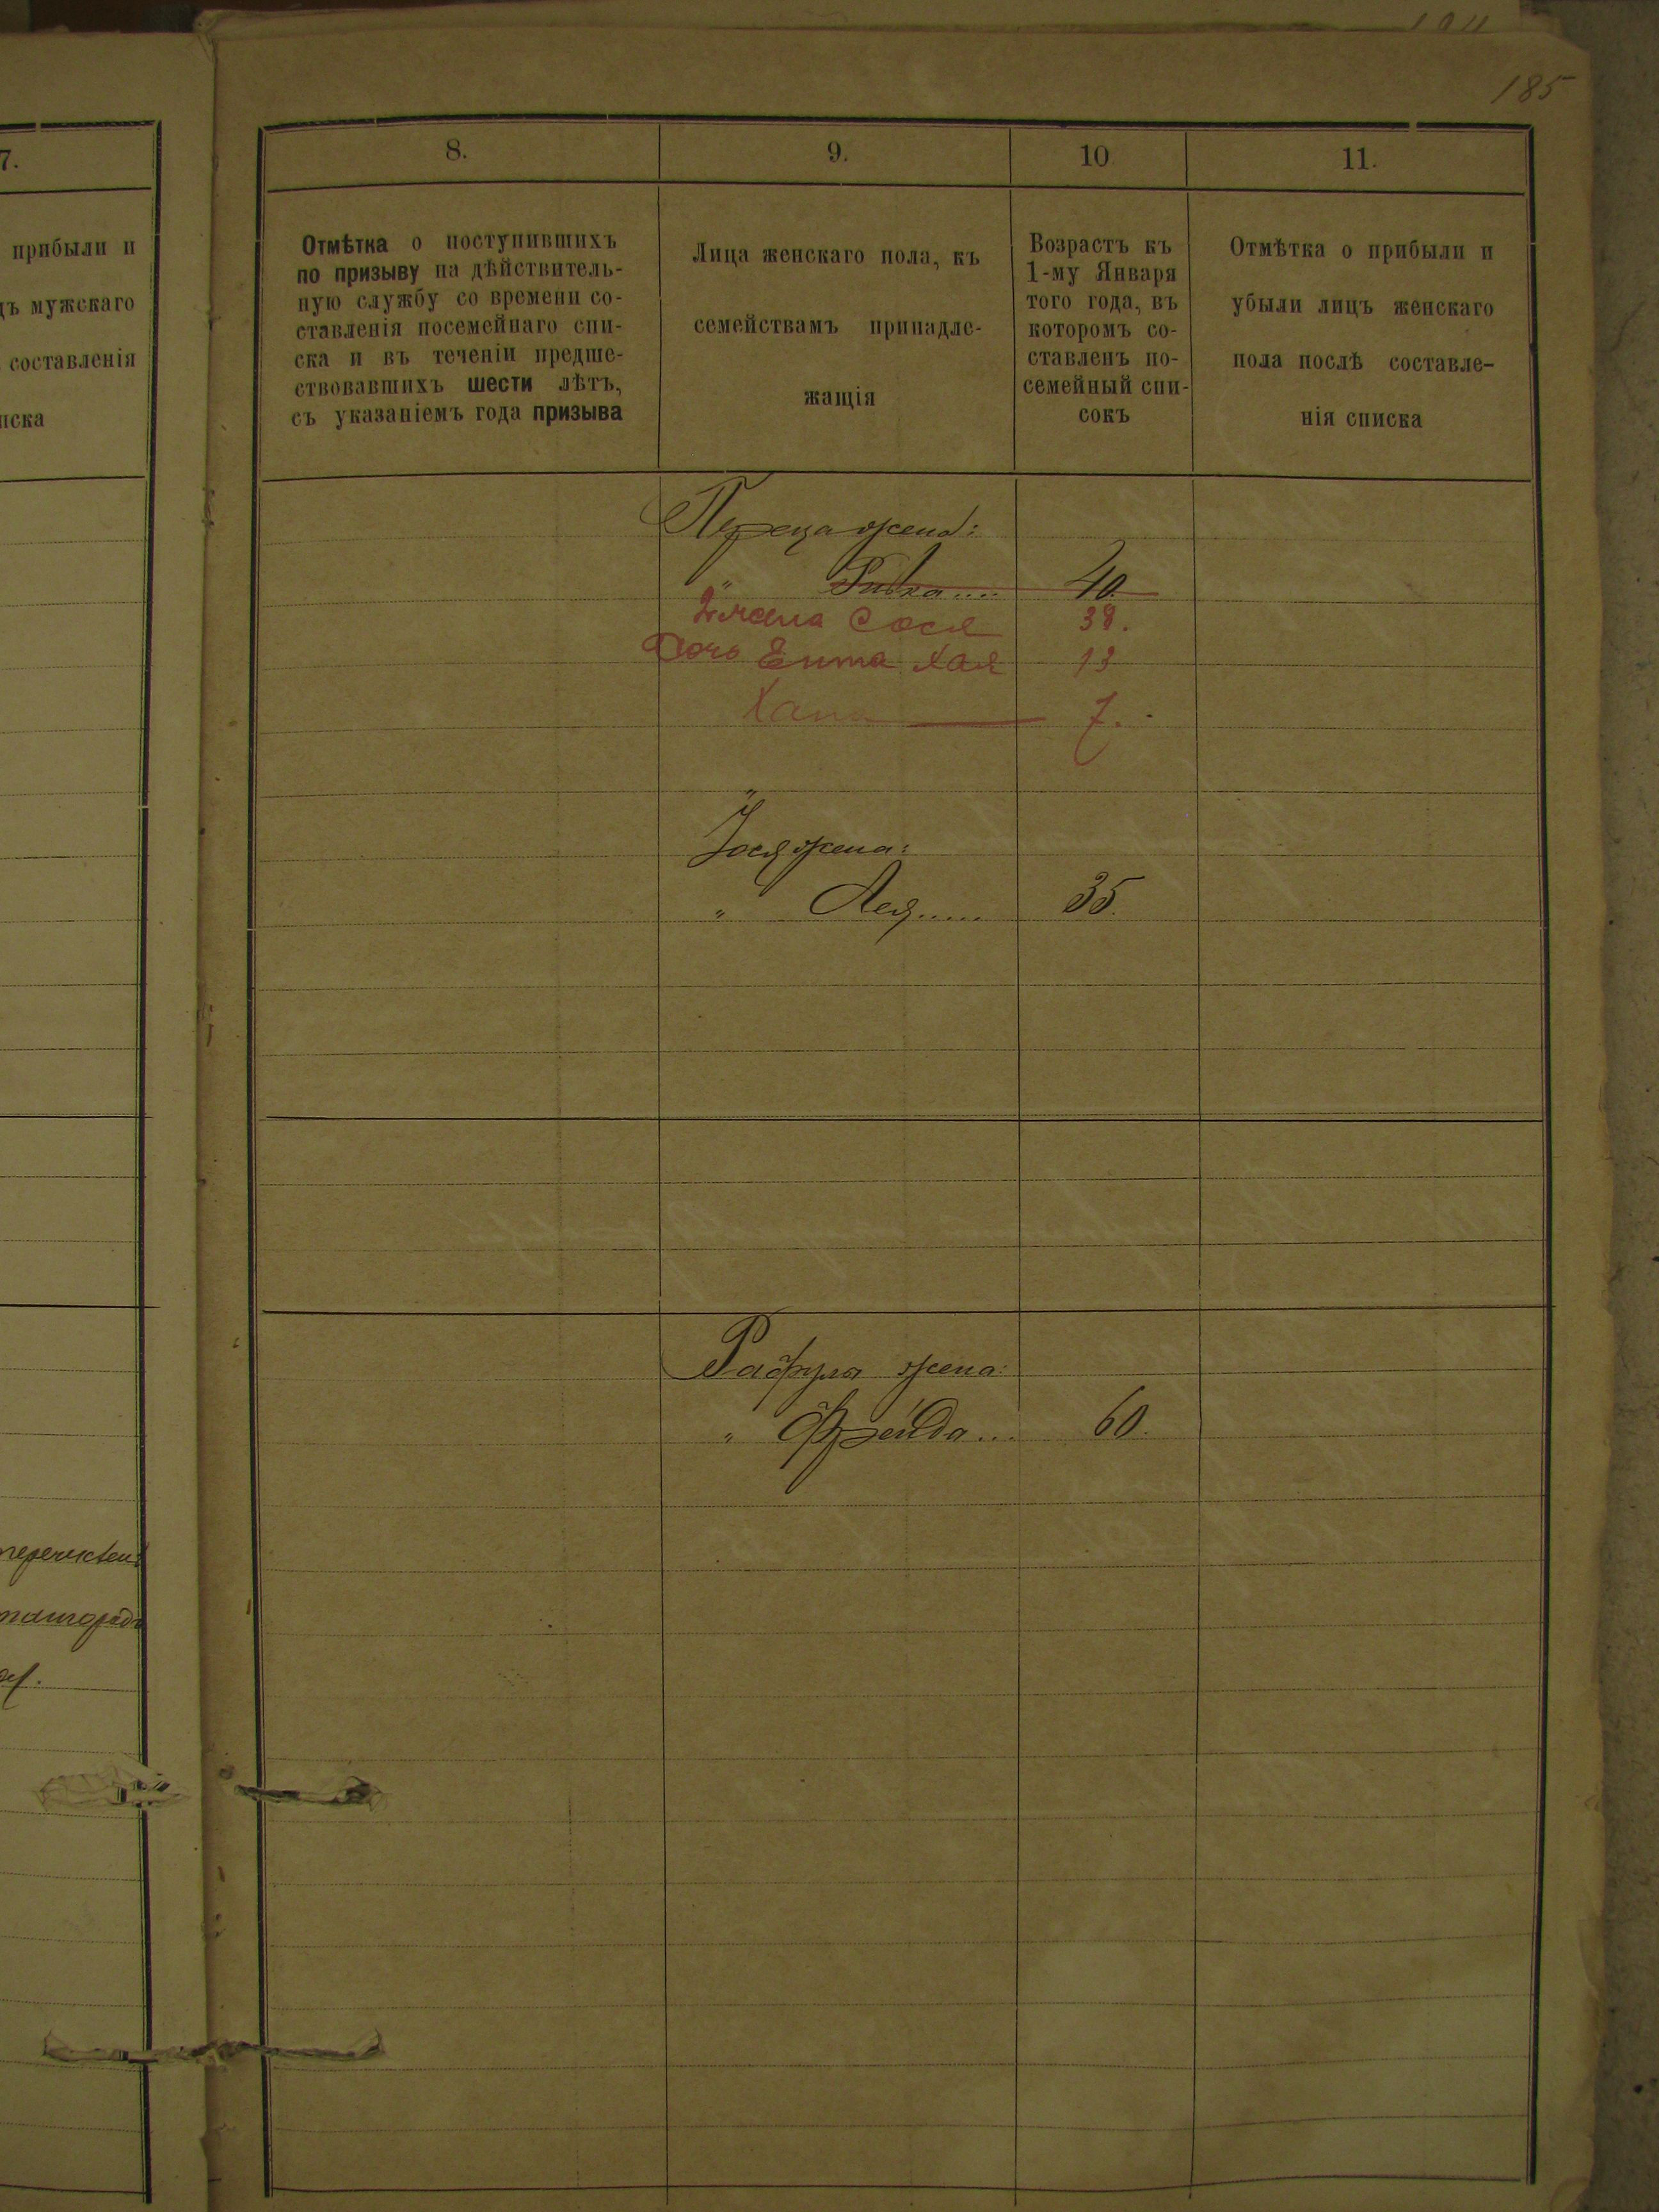 185
7.
прибыли и
мужскаго
составленія
8.
9.
10
11.
Отмѣтка о поступившихъ
по призыву на дѣйствитель-
ную службу со времени со-
ставленія посемейнаго спи-
ска и въ теченіи предше-
ствовавшихъ шести лѣтъ,
съ указаніемъ года призыва
Лица женскаго пола, къ
семействамъ принадле-
жащія
Возрастъ къ
1-му Января
того года, въ
которомъ со-
ставленъ по-
семейный спи-
сокъ
Отмѣтка о прибыли и
убыли лицъ женскаго
пола послѣ составле-
нія списка
Переца жена:
" Ривка.... 40.
2 жена Сося 38.
Дочь Ента Хая 13
Хана 7.
"
Іося жена:
" Лея..... 35.
Рафула жена:
" Фрейда... 60.